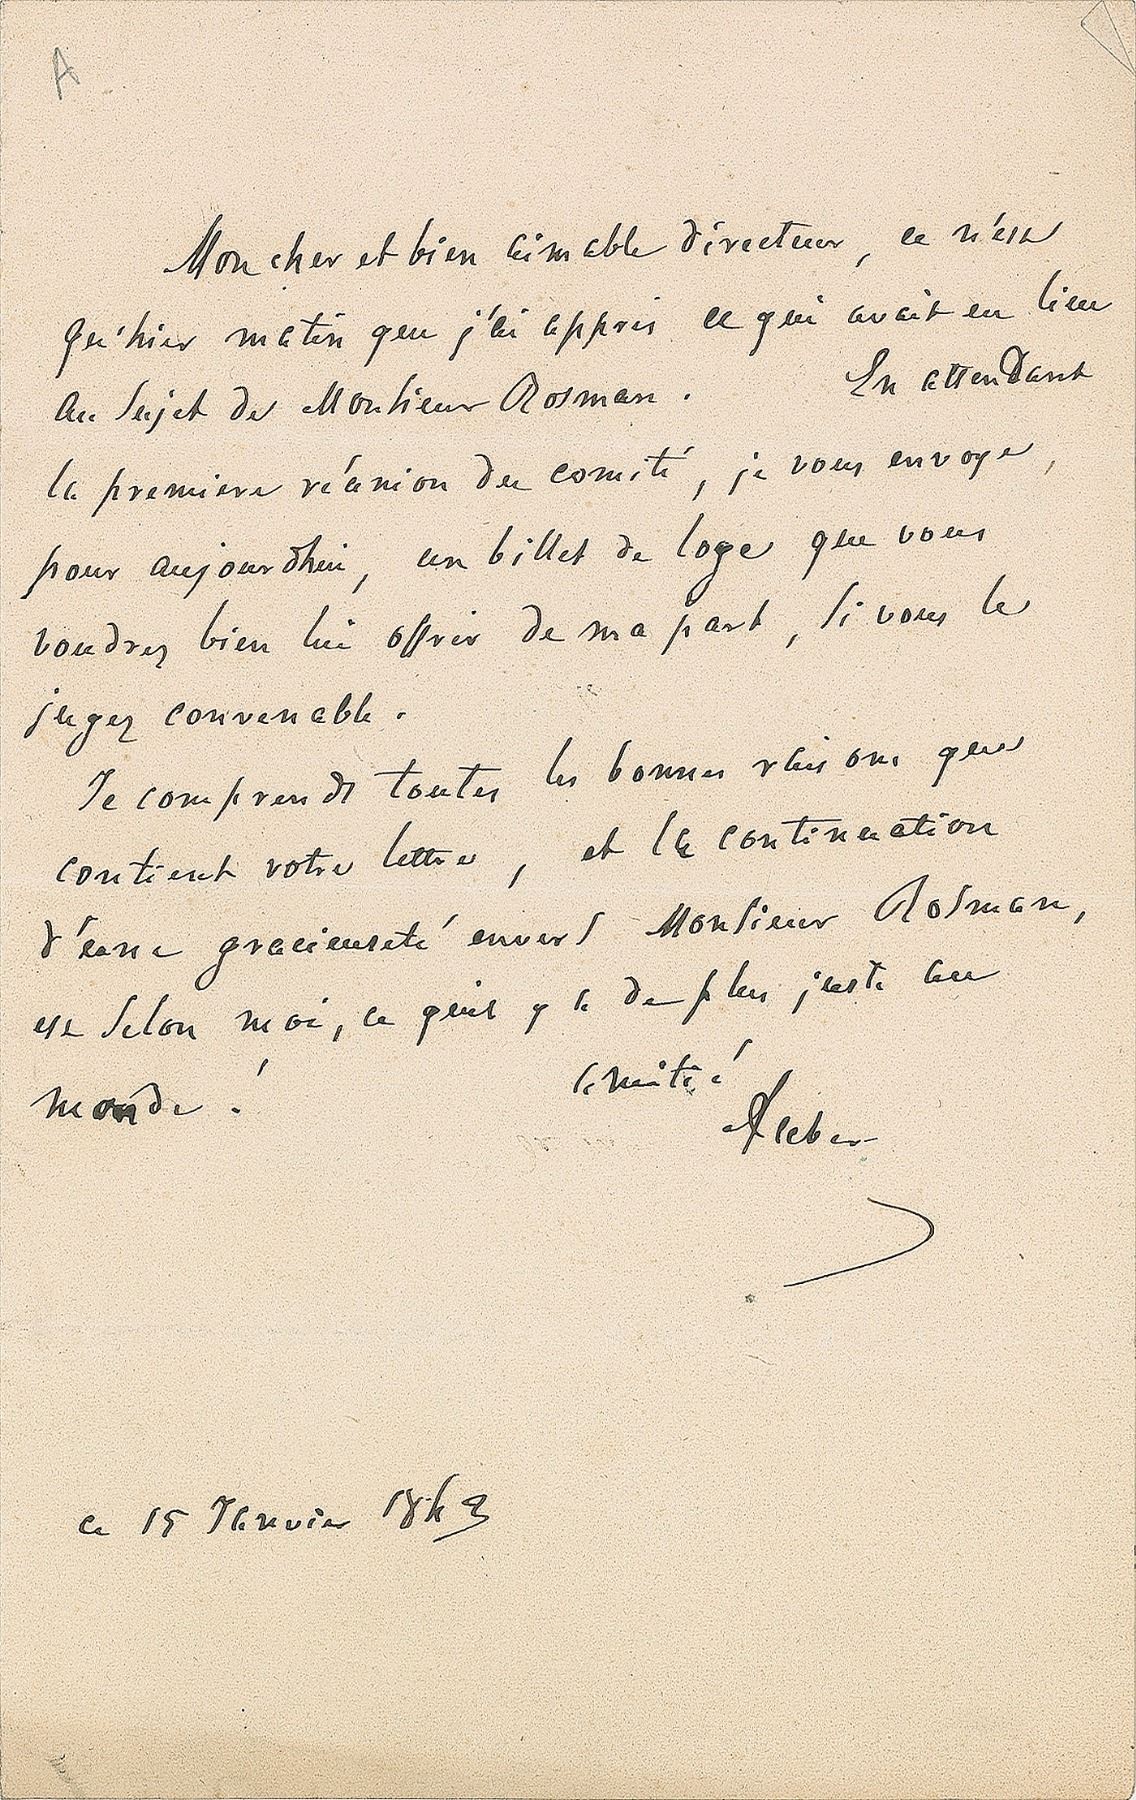 A
Mon cher et bien aimable directeur, ce n'est
qu'hier matin que j'ai appris ce qui avait eu lieu
au sujet de Monsieur Rosman. En attendant
la premiere réunion du comité, je vous envoye,
pour aujourdhui, un billet de loge que vous
voudrez bien lui offrir de ma part, si vous le
jugez convenable.
Je comprends toutes les bonnes raisons que
contient votre lettre, et la continuation
d'une gracieuseté envers Monsieur Rosman,
est selon moi, ce qu'il y a de plus juste au
monde.
amitié
ce 15 Janvier